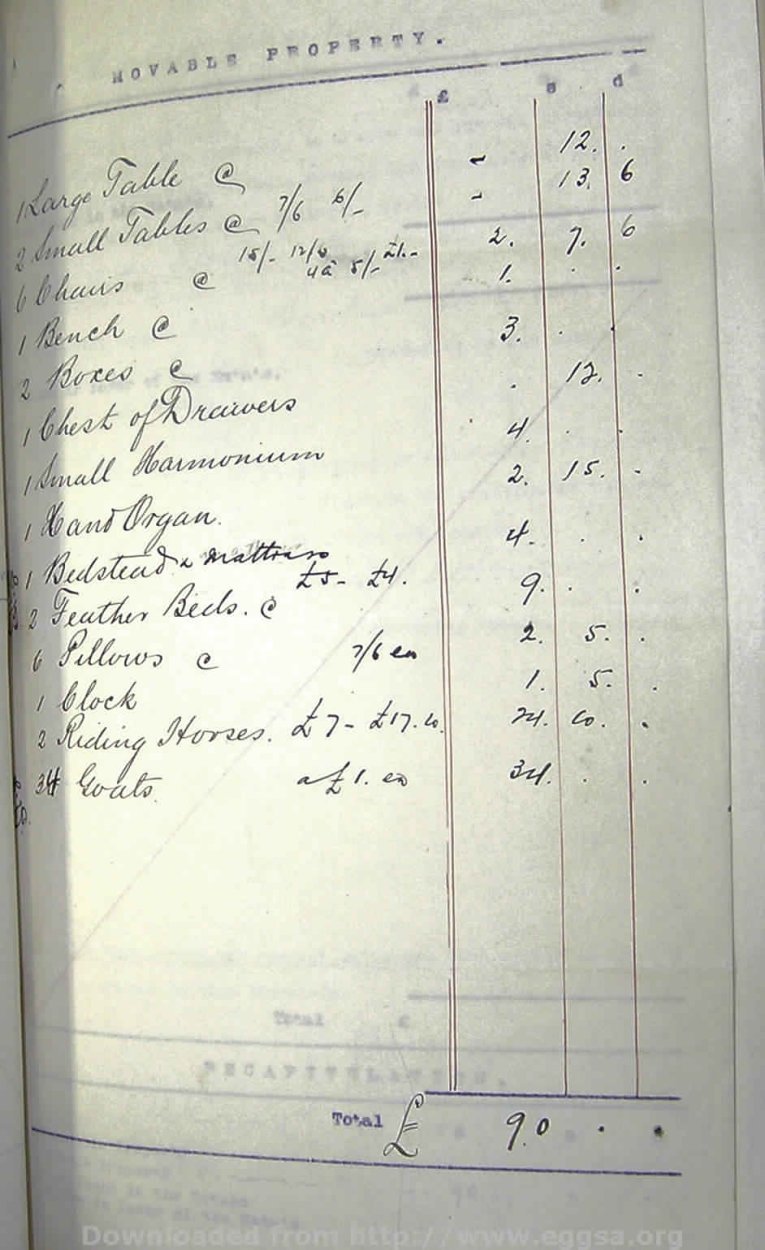 MOVABLE PROPERTY.
£ s d
1 Large Table @ - 12. .
2 Small Tables @ 7/6 6/- - 13. 6
6 Chairs @ 15/- 12/6 4 a 5/- £1.- 2. 7. 6
1 Bench @ 1. . .
2 Boxes @ 3. . .
1 Chest of Drawers . 12. .
1 Small Harmonium 4. . .
1 Hand Organ. 2. 15. .
1 Bedstead & Mattrass 4. . .
2 Feather Beds. @ £5- £4. 9. . .
6 Pillows @ 7/6 ea 2. 5. .
1 Clock 1. 5. .
2 Riding Horses. £7- £17.10. 24. 10. .
34 Goats. a £1. ea 34. . .
Total £ 90 . .
Downloaded from http://www.eggsa.org